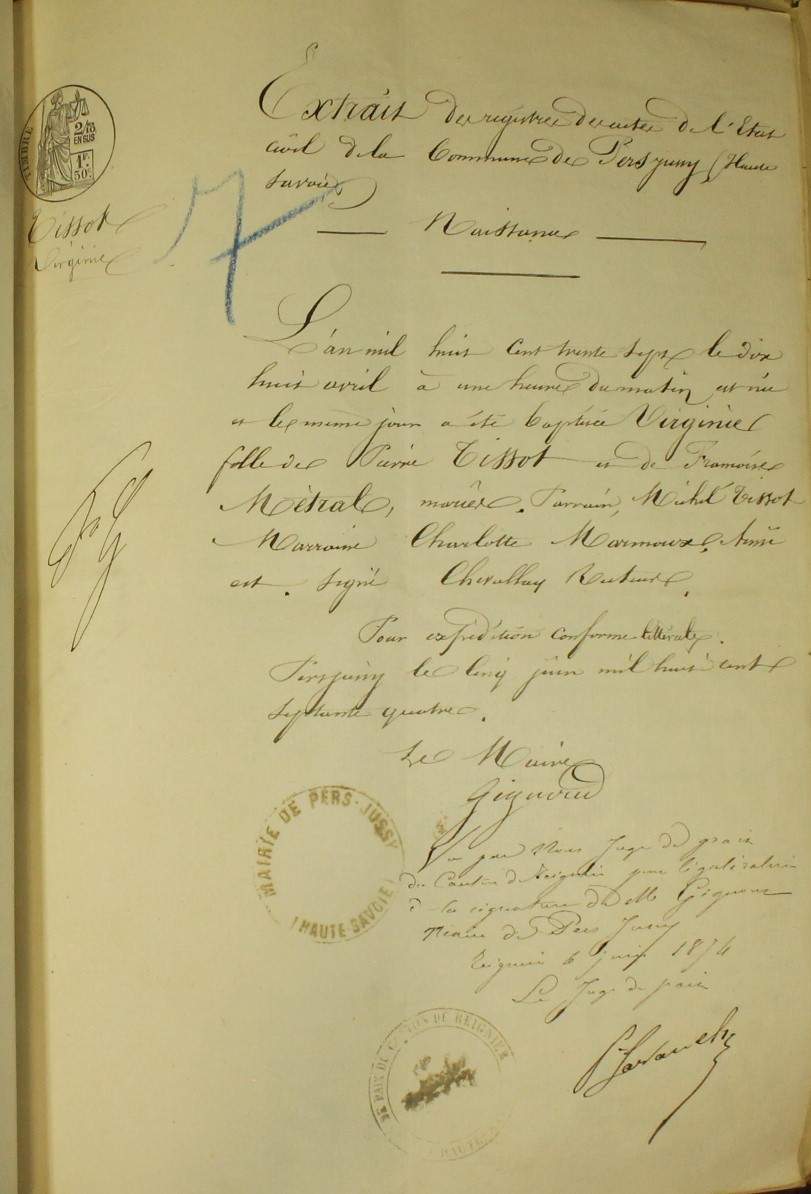 TIMBRE
2/10
EN SUS
1F.
50c.
Tissot
Virginie
7
Extrait des registres des actes de l'Etat
civil de la Commune de Persjussy (Haute
Savoie)
Naissance
L'an mil huit cent trente sept le dix
huit avril à une heure du matin est née
et le même jour a été baptisée Virginie
fille de Pierre Tissot et de Françoise
Métral, mariés. Parrain, Michel Tissot
Marraine Charlotte Marmoux. Ainsi
est. Signé Chevallay Recteur.
Pour expédition conforme littérale.
Persjussy le cinq juin mil huit cent
septante quatre.
Le Maire
MAIRIE DE PERS-JUSSY
(HAUTE SAVOIE)
Vu par Nous Juge de paix
du Canton de Reignier pour légalisation
de la signature de Mr
Maire de Pers Jussy
Reignier 6 juin 1874
Le Juge de paix
DE PAIX DU CANTON DE REIGNIER
HAUTE